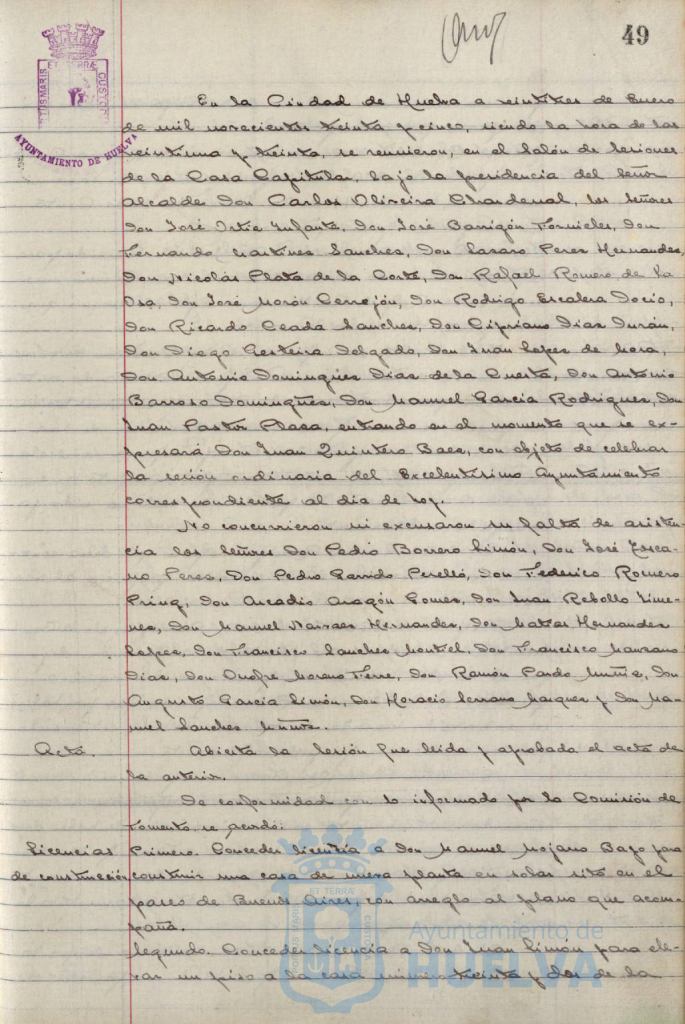 49
ET TERRAE
AYUNTAMIENTO DE HUELVA
En la Ciudad de Huelva a veintitres de Enero
de mil novecientos treinta y cinco, siendo la hora de las
veintiuna y treinta, se reunieron, en el Salón de Sesiones
de la Casa Capitular, bajo la presidencia del Señor
Alcalde Don Carlos Oliveira Chardenal, los Señores
Don José Ortiz Infante, Don José Barrigón Fornieles, Don
Fernando Martinez Sanchez, Don Lazaro Perez Hernandez,
Don Nicolás Plata de la Corte, Don Rafael Romero de la
Osa, Don José Morón Cerrejón, Don Rodrigo Escalera Docio,
Don Ricardo Ceada Sanchez, Don Cipriano Dias Durán,
Don Diego Gesteira Delgado, Don Juan Lopez de Mora,
Don Antonio Dominguez Dias de la Cuesta, Don Antonio
Barroso Dominguez, Don Manuel Garcia Rodriguez, Don
Juan Pastor Plaza, entrando en el momento que se ex-
presará Don Juan Quintero Baez, con objeto de celebrar
la sesión ordinaria del Excelentisimo Ayuntamiento
correspondiente al dia de hoy.
No concurrieron ni excusaron su falta de asisten-
cia los Señores Don Pedro Borrero Limón, Don José Tosca-
no Perez, Don Pedro Garrido Perelló, Don Federico Romero
Don Arcadio Aragón Gomez, Don Juan Rebollo Jime-
nez, Don Manuel Narvaez Hernandez, Don Matias Hernandez
Lopez, Don Francisco Sanchez Montiel, Don Francisco Manzano
Dias, Don Onofre Moreno Ferre, Don Ramón Pardo Muñiz, Don
Augusto Garcia Limón, Don Horacio Serrano Marquez y Don Ma-
nuel Sanchez
Acta. Abierta la Sesión fue leida y aprobada el acta de
la anterior.
De conformidad con lo informado por la Comisión de
Fomento, se acordó:
Licencias de construcción Primero. Conceder licencia a Don Manuel Mojarro Bayo para
construir una casa de nueva planta en solar sito en el
paseo de Buenos Aires, con arreglo al plano que acom-
paña.
Segundo. Conceder licencia a Don Juan Limón para ele-
var un piso a la casa número treinta y dos de la
Ayuntamiento de
HUELVA